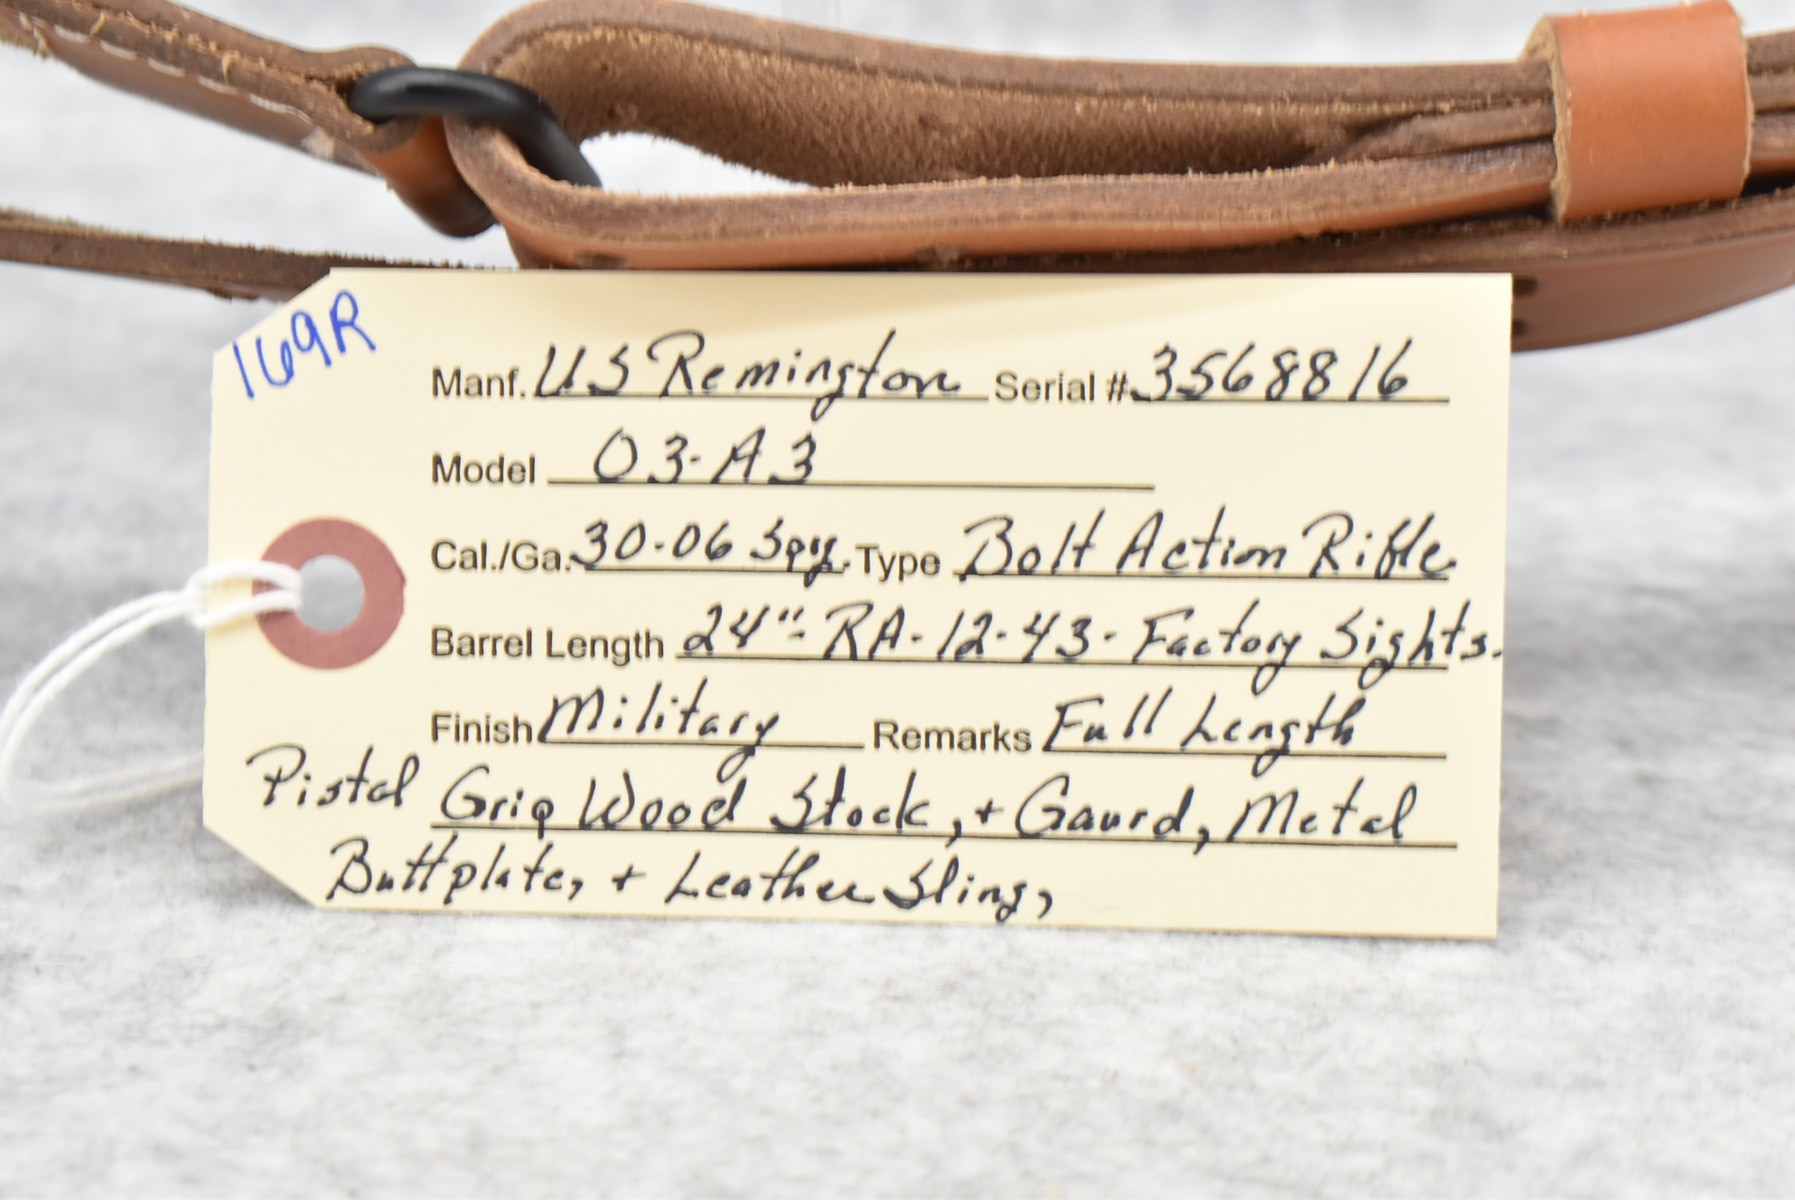 169R
Manf. US Remington Serial # 3568816
Model 03-A3
Cal./Ga. 30-06 Spg. Type Bolt Action Rifle
Barrel Length 24"- RA-12-43- Factory Sights.
Finish Military Remarks Full Length
Pistol Grip Wood Stock, + Gaurd, Metal
Buttplate, + Leather Sling,